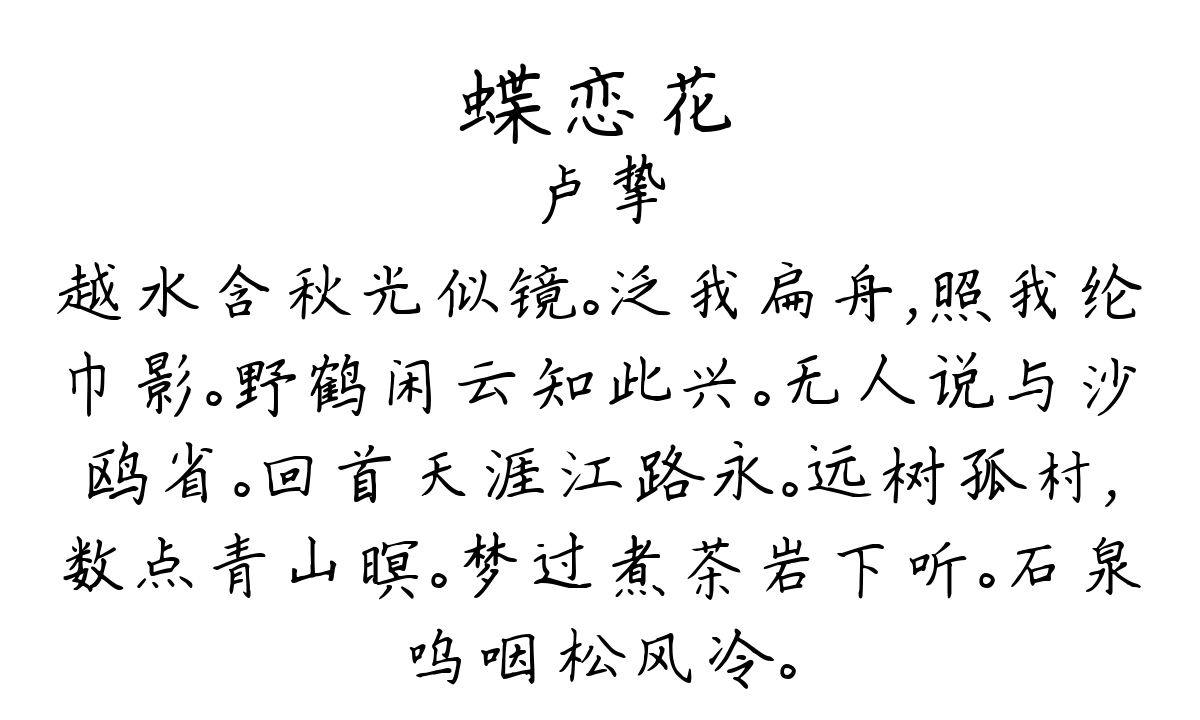 蝶恋花
卢挚
越水含秋光似镜。泛我扁舟,照我纶
巾影。野鹤闲云知此兴。无人说与沙
鸥省。回首天涯江路永。远树孤村,
数点青山暝。梦过煮茶岩下听。石泉
呜咽松风冷。